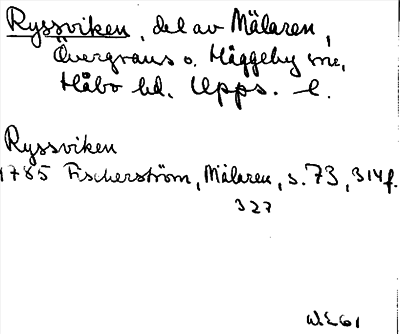 Ryssviken, del av Mälaren,
Övergrans o. Häggeby snr,
Håbo hd. Upps. l.
Ryssviken
1785 Fischerström, Mälaren, s. 73, 314f.
327